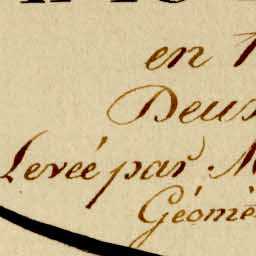 en 1
Deux
Levée par M
Géomè